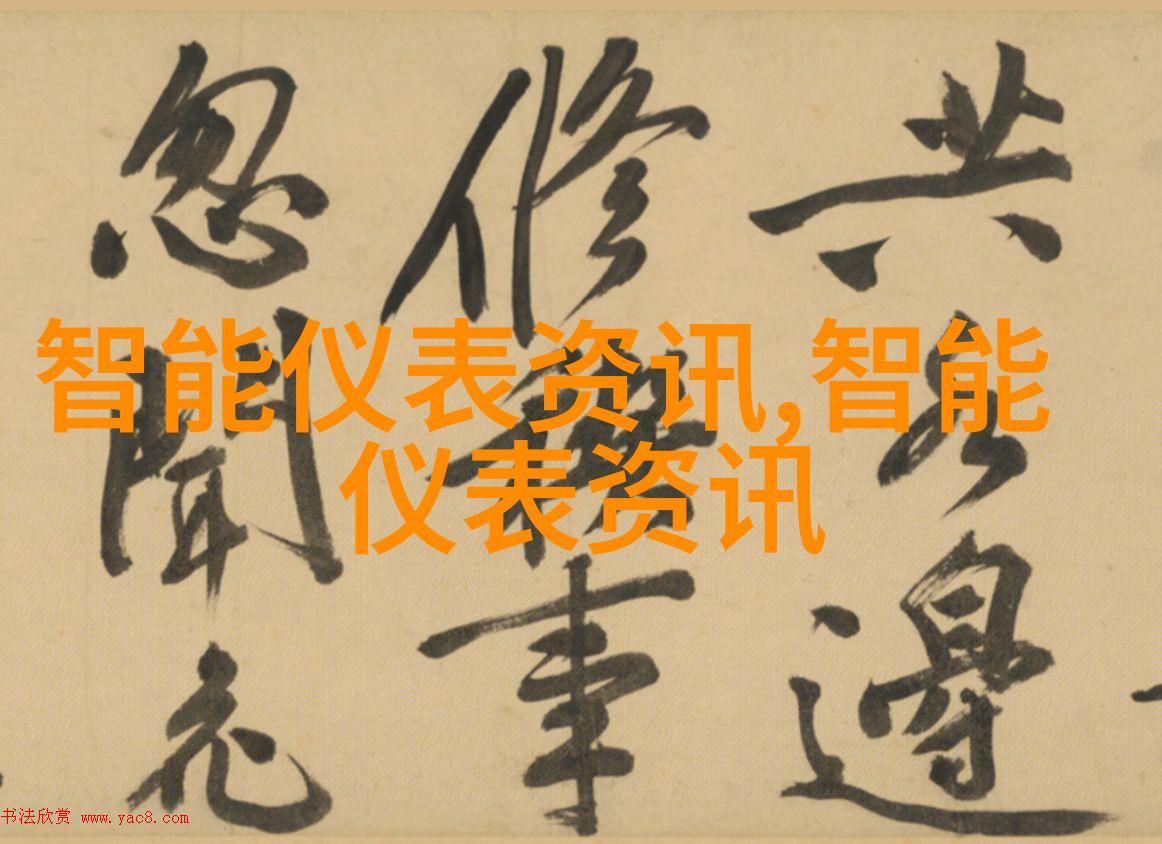 智能仪表资讯,智能
仪表资讯
共水邊
修禊事
忽聞
书法欣赏 www.yac8.com